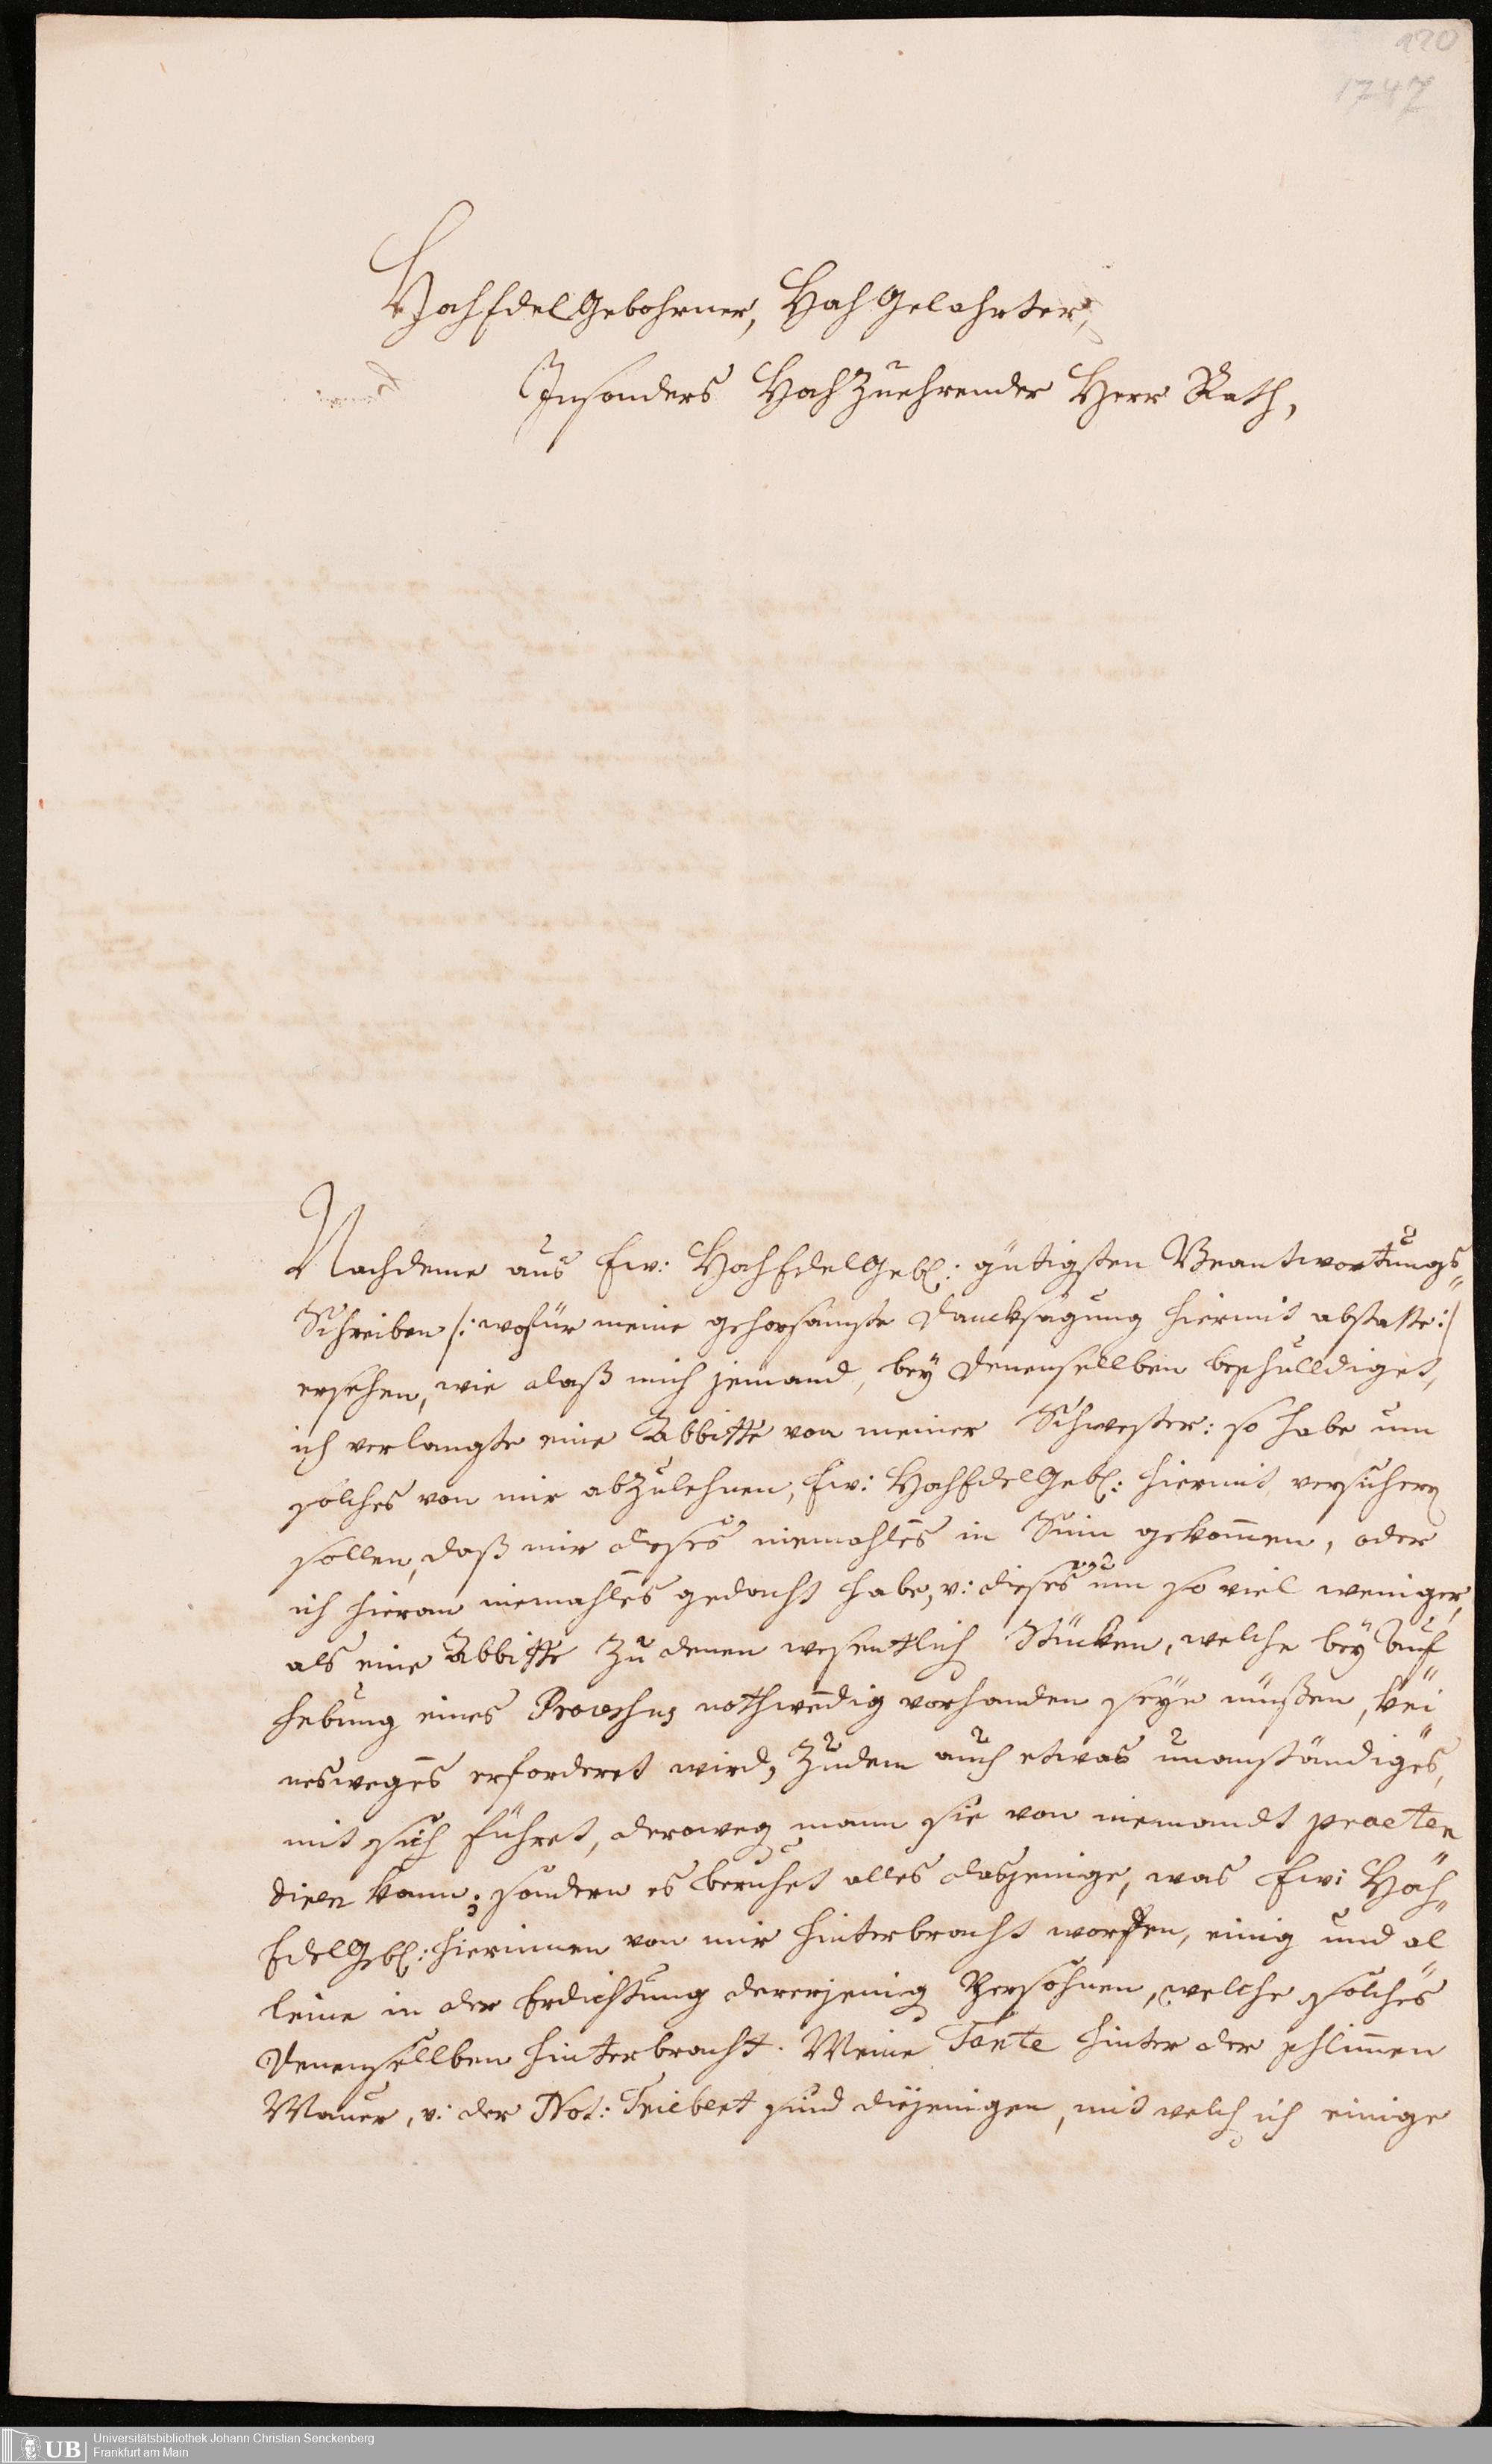 920
1747
HochEdelGebohrner, HochGelahrter,
Insonders HochZuehrender Herr Rath,
Nachdeme aus Ew: HochEdelGebl: gütigsten Beantwortungs„
Schreiben /: wofür meine gehorsamste Dancksagung hiermit abstatte :/
ersehen, wie daß mich jemand, bey Denensellben beschulldiget,
ich verlangte eine Abbitte von meiner Schwester: so habe um
solches von mir abzulehnen, Ew: HochEdelGebl: hiermit versichern
sollen, daß mir dieses niemahlßs in Sinn gekom̄en, oder
ich hieran niemahlßs gedacht habe, v: dieses um so viel weniger,
als eine Abbitte zu denen wesentlich Stücken, welche bey Auf„
hebung eines Processus nothwendig vorhanden seyn müßen, kei„
nesweges erfordert wird, Zudem auch etwas unanständiges,
mit sich führet, deroweg mann sie von niemandt praeten
diren kann; sondern es beruhet alles dasjenige, was Ew: Hoch„
EdelGebl: hierinnen von mir hinterbracht worden, einig und al„
leine in der Erdichtung dererjenig Persohnen, welche solches
Denensellben hinterbracht. Meine Tante hinter der schlim̄en
Mauer, v: der Not: Triebert sind diejenigen, mit welch ich einige
UB
Universitätsbibliothek Johann Christian Senckenberg
Frankfurt am Main